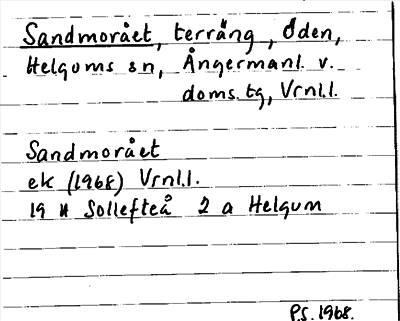 Sandmorået, terräng, Öden,
Helgums sn, Ångermanl. v.
doms. tg, Vrnl.l.
Sandmorået
ek (1968) Vrnl.l.
19 H Sollefteå 2 a Helgum
P.S. 1968.